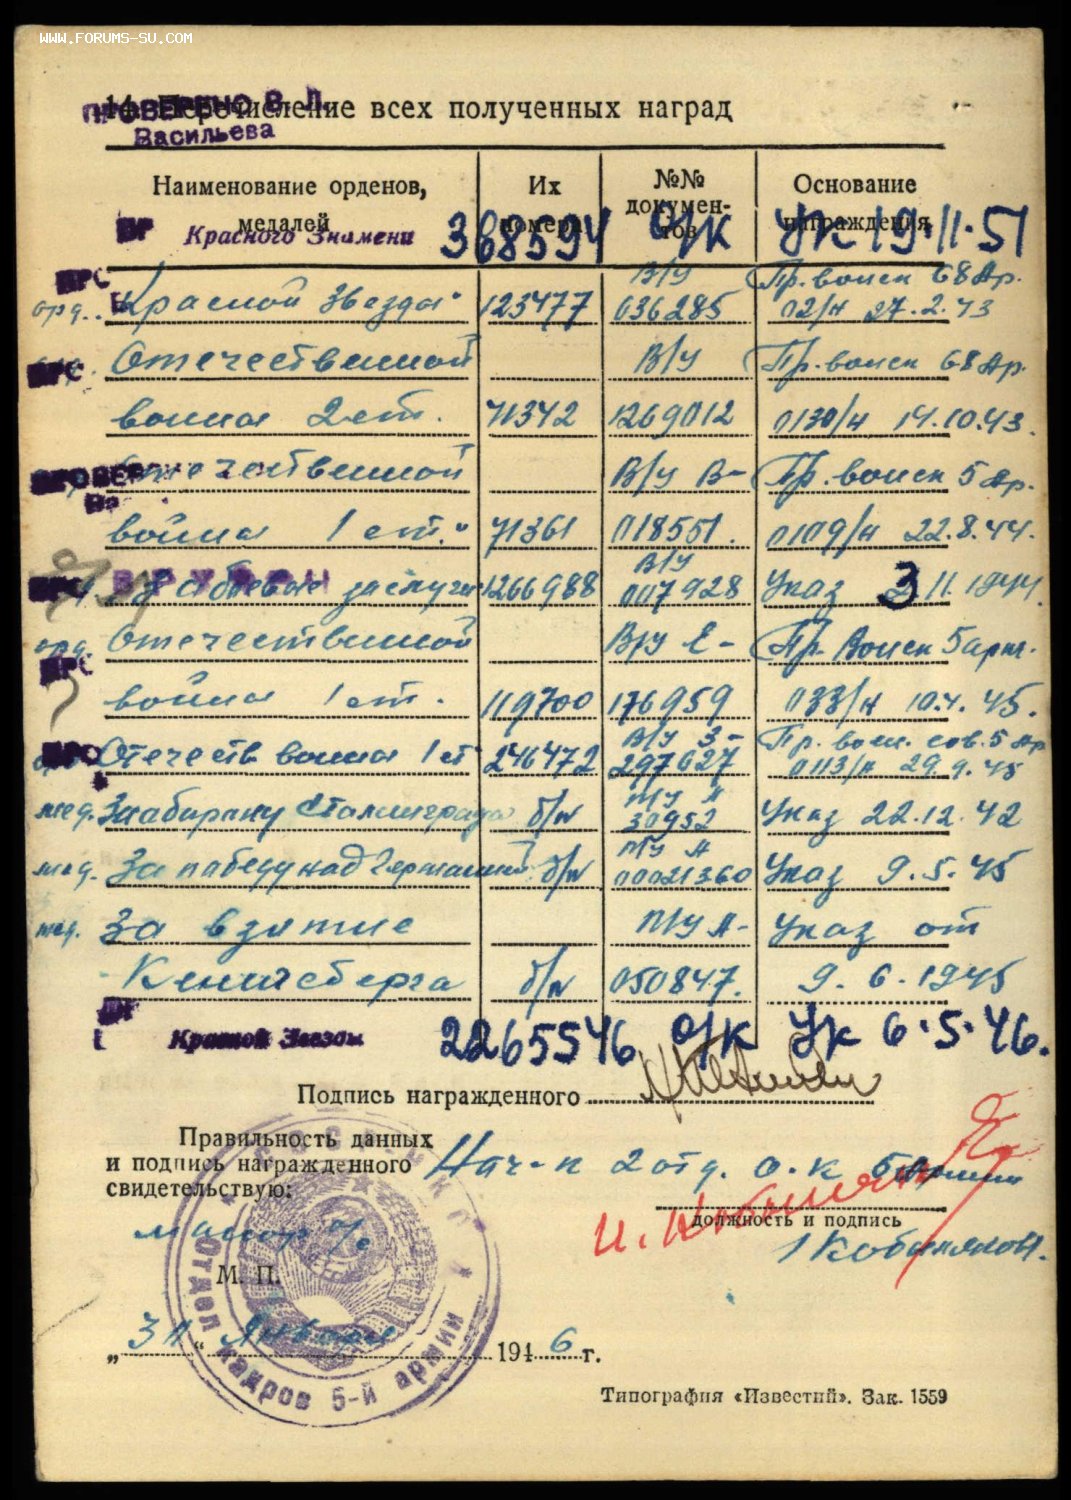 WWW.FORUMS-SU.COM
14. Перечисление всех полученных наград
ПРОВЕРЕНО В. Л.
Васильева
Наименование орденов, медалей
Их номера
№№ документов
Основание награждения
Красного Знамени 368594 О/К Ук 19.11.51
орд. Красной Звезды 123477 В/У 036285 Пр. войск 68 Ар. 02/н 27.2.43
Отечественной В/У Пр. войск 68 Ар.
война 2 ст. 71342 1269012 0130/н 14.10.43.
Отечественной В/У В- Пр. войск 5 Ар.
война 1 ст. 71361 018551. 0109/н 22.8.44.
За боевые заслуги 1266988 В/У 007928 Указ 3 11.1944.
орд. Отечественной В/У Е- Пр. Войск 5 арм.
война 1 ст. 119700 176959 033/н 10.4.45.
Отечеств война 1 ст 246472 В/У З- 297627 Пр. войск. сов. 5 Ар 0113/н 29.9.45
мед. За абарону Сталинграда б/н П/У А 30952 Указ 22.12.42
мед. За победу над Германией б/н П/У А 00021360 Указ 9.5.45
мед. За взятие П/У А- Указ от
Кенигсберга б/н 050847. 9.6.1945
Красной Звезды 2265546 О/К Ук 6.5.46.
Подпись награжденного
Правильность данных
и подпись награжденного
свидетельствую:
Нач-к 2 отд. о.к 5 Армии
должность и подпись
майор а/с
Кобылянов.
М. П.
отдел кадров 5-й армии
„31“ Января 1946 г.
Типография «Известий». Зак. 1559